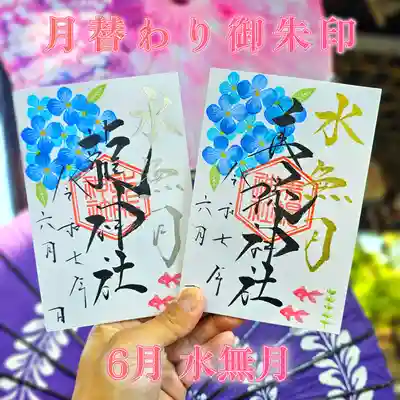 月替わり御朱印
水無月
神社
令和七年
六月 日
水無月
神社
令和七年
六月
6月 水無月